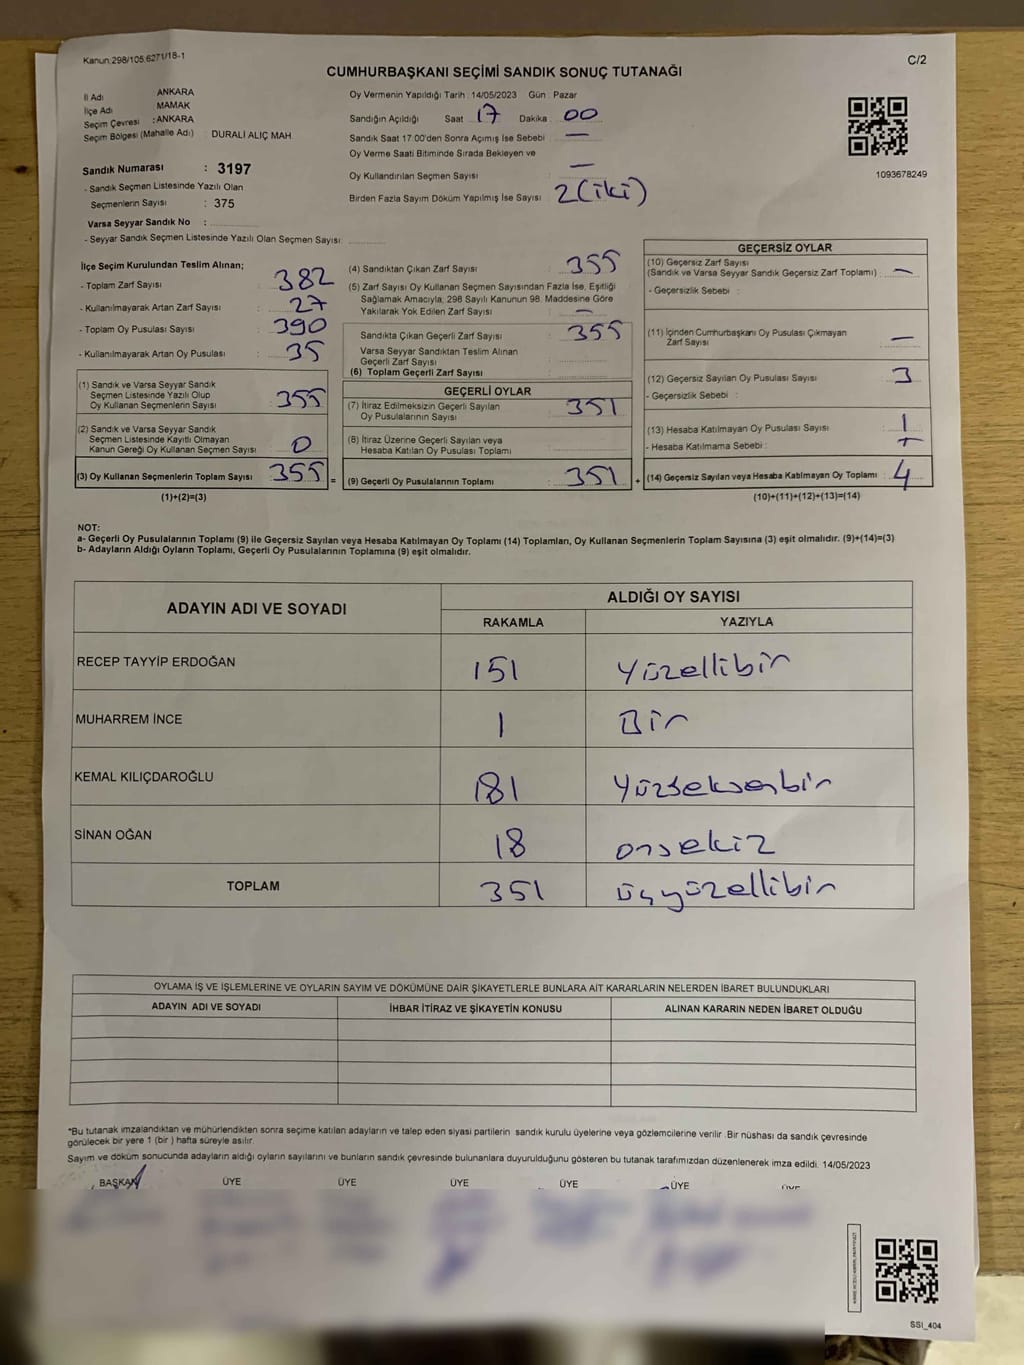 Kanun:298/105.6271/18-1
C/2
CUMHURBAŞKANI SEÇİMİ SANDIK SONUÇ TUTANAĞI
İl Adı ANKARA
İlçe Adı MAMAK
Seçim Çevresi : ANKARA
Seçim Bölgesi (Mahalle Adı) : DURALİ ALIÇ MAH.
Sandık Numarası : 3197
- Sandık Seçmen Listesinde Yazılı Olan
Seçmenlerin Sayısı : 375
Varsa Seyyar Sandık No :
- Seyyar Sandık Seçmen Listesinde Yazılı Olan Seçmen Sayısı:
Oy Vermenin Yapıldığı Tarih : 14/05/2023 Gün : Pazar
Sandığın Açıldığı Saat : 17 Dakika : 00
Sandık Saat 17:00'den Sonra Açımış İse Sebebi : —
Oy Verme Saati Bitiminde Sırada Bekleyen ve
Oy Kullandırılan Seçmen Sayısı : —
Birden Fazla Sayım Döküm Yapılmış İse Sayısı : 2 (iki)
1093678249
İlçe Seçim Kurulundan Teslim Alınan;
- Toplam Zarf Sayısı : 382
- Kullanılmayarak Artan Zarf Sayısı : 27
- Toplam Oy Pusulası Sayısı : 390
- Kullanılmayarak Artan Oy Pusulası : 35
(1) Sandık ve Varsa Seyyar Sandık
Seçmen Listesinde Yazılı Olup
Oy Kullanan Seçmenlerin Sayısı : 355
(2) Sandık ve Varsa Seyyar Sandık
Seçmen Listesinde Kayıtlı Olmayan
Kanun Gereği Oy Kullanan Seçmen Sayısı : 0
(3) Oy Kullanan Seçmenlerin Toplam Sayısı : 355 =
(1)+(2)=(3)
(4) Sandıktan Çıkan Zarf Sayısı : 355
(5) Zarf Sayısı Oy Kullanan Seçmen Sayısından Fazla İse, Eşitliği
Sağlamak Amacıyla, 298 Sayılı Kanunun 98. Maddesine Göre
Yakılarak Yok Edilen Zarf Sayısı : —
Sandıkta Çıkan Geçerli Zarf Sayısı : 355
Varsa Seyyar Sandıktan Teslim Alınan
Geçerli Zarf Sayısı :
(6) Toplam Geçerli Zarf Sayısı :
GEÇERLİ OYLAR
(7) İtiraz Edilmeksizin Geçerli Sayılan
Oy Pusulalarının Sayısı : 351
(8) İtiraz Üzerine Geçerli Sayılan veya
Hesaba Katılan Oy Pusulası Toplamı :
(9) Geçerli Oy Pusulalarının Toplamı : 351 +
GEÇERSİZ OYLAR
(10) Geçersiz Zarf Sayısı
(Sandık ve Varsa Seyyar Sandık Geçersiz Zarf Toplamı) : —
- Geçersizlik Sebebi :
(11) İçinden Cumhurbaşkanı Oy Pusulası Çıkmayan
Zarf Sayısı : —
(12) Geçersiz Sayılan Oy Pusulası Sayısı : 3
- Geçersizlik Sebebi :
(13) Hesaba Katılmayan Oy Pusulası Sayısı : 1
- Hesaba Katılmama Sebebi :
(14) Geçersiz Sayılan veya Hesaba Katılmayan Oy Toplamı : 4
(10)+(11)+(12)+(13)=(14)
NOT:
a- Geçerli Oy Pusulalarının Toplamı (9) ile Geçersiz Sayılan veya Hesaba Katılmayan Oy Toplamı (14) Toplamları, Oy Kullanan Seçmenlerin Toplam Sayısına (3) eşit olmalıdır. (9)+(14)=(3)
b- Adayların Aldığı Oyların Toplamı, Geçerli Oy Pusulalarının Toplamına (9) eşit olmalıdır.
ADAYIN ADI VE SOYADI ALDIĞI OY SAYISI
RAKAMLA YAZIYLA
RECEP TAYYİP ERDOĞAN 151 Yüzellibir
MUHARREM İNCE 1 Bir
KEMAL KILIÇDAROĞLU 181 Yüzseksenbir
SİNAN OĞAN 18 onsekiz
TOPLAM 351 üçyüzellibir
OYLAMA İŞ VE İŞLEMLERİNE VE OYLARIN SAYIM VE DÖKÜMÜNE DAİR ŞİKAYETLERLE BUNLARA AİT KARARLARIN NELERDEN İBARET BULUNDUKLARI
ADAYIN ADI VE SOYADI İHBAR İTİRAZ VE ŞİKAYETİN KONUSU ALINAN KARARIN NEDEN İBARET OLDUĞU
*Bu tutanak imzalandıktan ve mühürlendikten sonra seçime katılan adayların ve talep eden siyasi partilerin sandık kurulu üyelerine veya gözlemcilerine verilir. Bir nüshası da sandık çevresinde
görülecek bir yere 1 (bir ) hafta süreyle asılır.
Sayım ve döküm sonucunda adayların aldığı oyların sayılarını ve bunların sandık çevresinde bulunanlara duyurulduğunu gösteren bu tutanak tarafımızdan düzenlenerek imza edildi. 14/05/2023
BAŞKAN ÜYE ÜYE ÜYE ÜYE ÜYE ÜYE
SSI_404